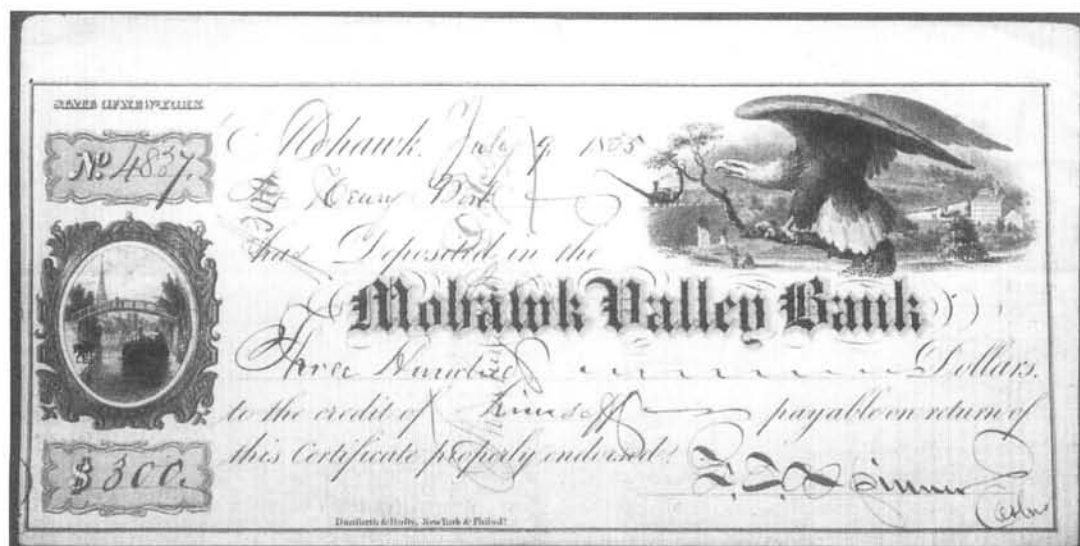 STATE OF NEW-YORK
No. 4837.
Mohawk, July 9, 1855
Henry
has Deposited in the
Mohawk Valley Bank
Three Hundred Dollars.
to the credit of himself payable on return of
this Certificate properly endorsed.
$300.
Cashr
Danforth & Hufty, New York & Philada